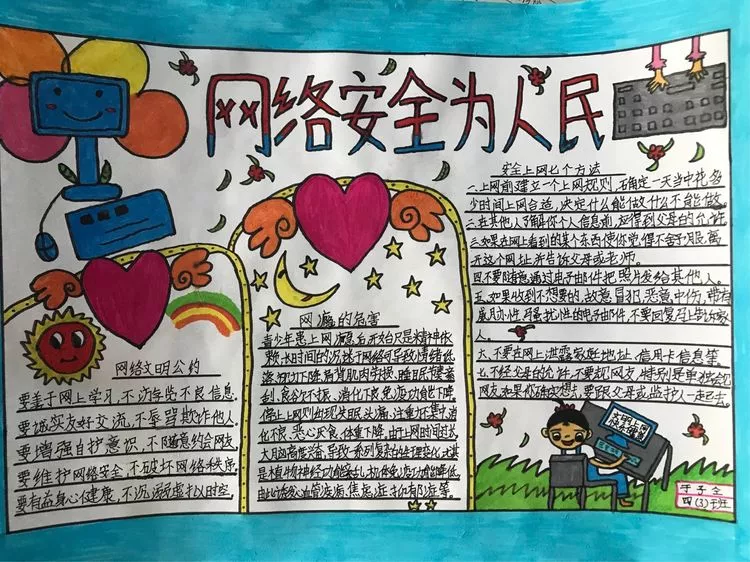 网络安全为人民
网络文明公约
要善于网上学习，不访学览不良信息
要诚实友好交流，不辱骂欺诈他人
要增强自护意识，不随意约会网友
要维护网络安全，不破坏网络秩序
要有益身心健康，不沉溺虚拟时空
网瘾的危害
青少年患上网瘾后开始只是精神依
赖,长时间的沉迷于网络可导致情绪低
落,视力下降,肩背肌肉劳损,睡眠节奏紊
乱,食欲不振,消化不良,免疫功能下降
停止上网则出现失眠,头痛,注意力不集中,消
化不良,恶心厌食,体重下降,由于上网时间过长,
大脑高度兴奋,导致一系列复杂的生理变化,尤其
是植物神经功能紊乱,机体免疫功能降低,
由此诱发心血管疾病,焦虑症,抑郁症等。
安全上网七个方法
一、上网前建立一个上网规则,确定一天当中花多
少时间上网合适,决定什么能做什么不能做。
二、在其他人了解你个人信息前,应得到父母的允许
三、如果在网上看到的某个东西使你觉得不舒服,离
开这个网址并告诉父母或老师。
四、不要随意通过电子邮件把照片发给其他人。
五、如果收到不想要的,故意冒犯,恶意中伤,带有
威胁性,骚扰性的电子邮件,不要回复马上告诉家
人。
六、不要在网上泄露家庭地址,信用卡信息等
七、不经父母的允许,不要和网友,特别是单独会见
网友,如果你确定想去,要跟父母或监护人一起去。
文明上网
四(3)班